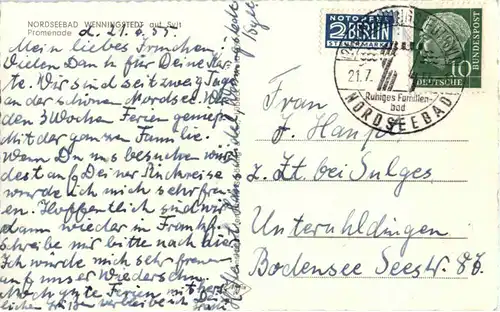 NORDSEEBAD WENNINGSTEDT auf Sylt
Promenade
d. 21.6.55.
Mein liebes Irmchen!
Vielen Dank für Deine Karte.
Wir sind seit zwei Tagen
an der schönen Nordsee. Werden
3 Wochen Ferien
mit der ganzen Familie.
Wenn Du uns besuchen würdest
auf Deiner Rückreise
würde ich mich sehr freuen.
Hoffentlich sind wir
dann wieder in Frankf.
Schreibe mir bitte nach
Ich würde mich sehr freuen
auf unser Wiedersehn.
Noch gute Ferien mit herzlichen
Grüßen verbleibe ich
NOTOPFER
2 BERLIN
STEUERMARKE
DEUTSCHE
10
21.7.
Ruhiges Familien-
bad
NORDSEEBAD
Frau
J. Hanf
z. Zt. bei Sulges
Unteruhldingen
Bodensee Seestr.